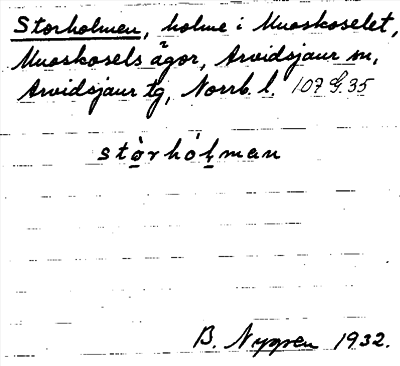 Storholmen, holme i Muoskoselet,
Muoskosels ägor, Arvidsjaur sn,
Arvidsjaur tg, Norrb. l. 107 G. 35
stòrhól̲man
B. Nygren 1932.